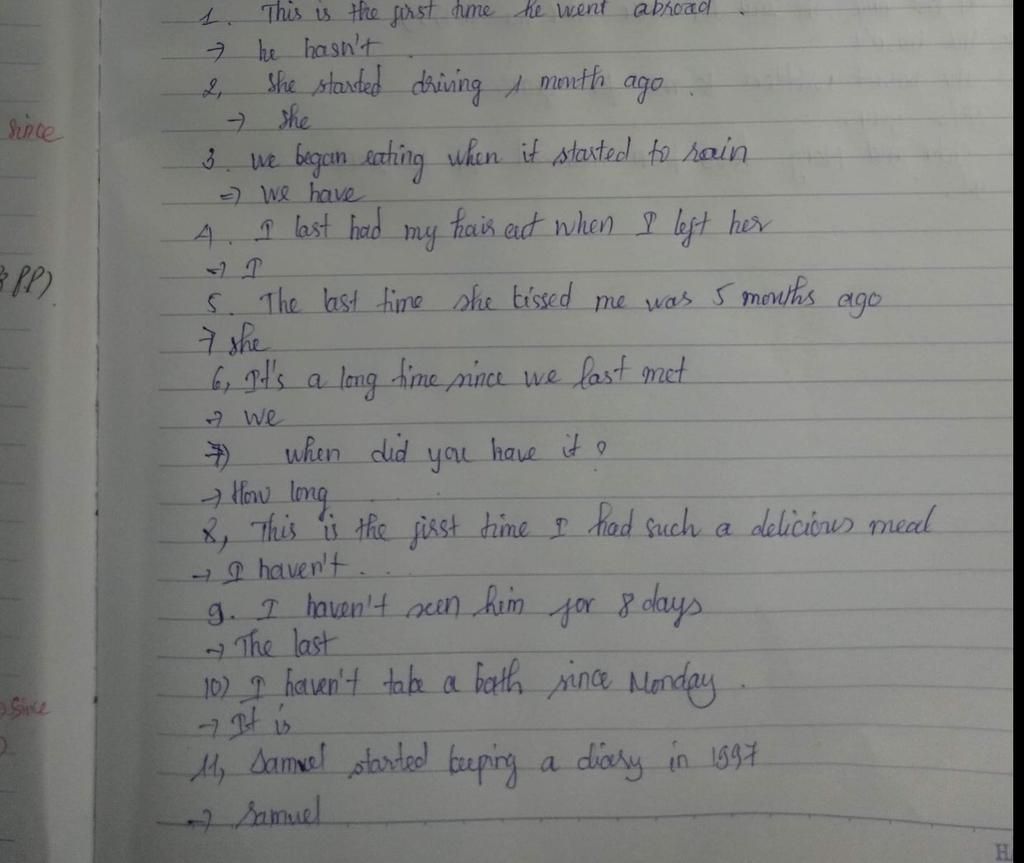 1. This is the first time he went abroad.
→ he hasn't
2, She started driving 1 month ago.
→ she
since
3. we began eating when it started to rain
=> we have
4. I last had my hair cut when I left her
→ I
& PP).
5. The last time she kissed me was 5 months ago
→ she
6, It's a long time since we last met
→ we
7) when did you have it?
→ How long
8, This is the first time I had such a delicious meal
→ I haven't ...
9. I haven't seen him for 8 days
→ The last
10) I haven't take a bath since Monday.
→ It is
since
11, Samuel started keeping a diary in 1997
→ Samuel
H